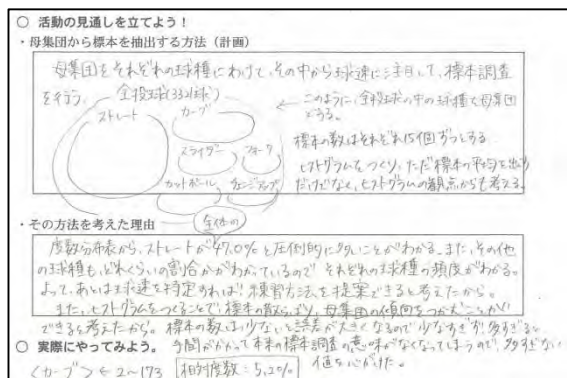 ○ 活動の見通しを立てよう！
・母集団から標本を抽出する方法（計画）
母集団をそれぞれの球種にわけて、その中から球速に注目して、標本調査
を行う。 全投球(3321球) ← このように、全投球の中の球種を母集団
とする。
ストレート カーブ
標本の数はそれぞれ15個ずつとする。
スライダー フォーク
ヒストグラムをつくり、ただ標本の平均を出す
カットボール チェンジアップ
だけでなく、ヒストグラムの観点からも考える。
・その方法を考えた理由
全体の
度数分布表から、ストレートが47.0%と圧倒的に多いことがわかる。また、その他
の球種も、どれくらいの割合かがわかっているので それぞれの球種の頻度がわかる。
よって、あとは球速を特定すれば、練習方法を提案できると考えたから。
また、ヒストグラムをつくることで、標本の散らばり、母集団の傾向をつかむことが
できると考えたから。標本の数は、少ないと誤差が大きくなるので少なすぎず、多すぎると
○ 実際にやってみよう。
手間がかかって本来の標本調査の意味がなくなってしまうので、多すぎない
値を心がけた。
<カーブ> ← 2～173 相対度数=5.2%